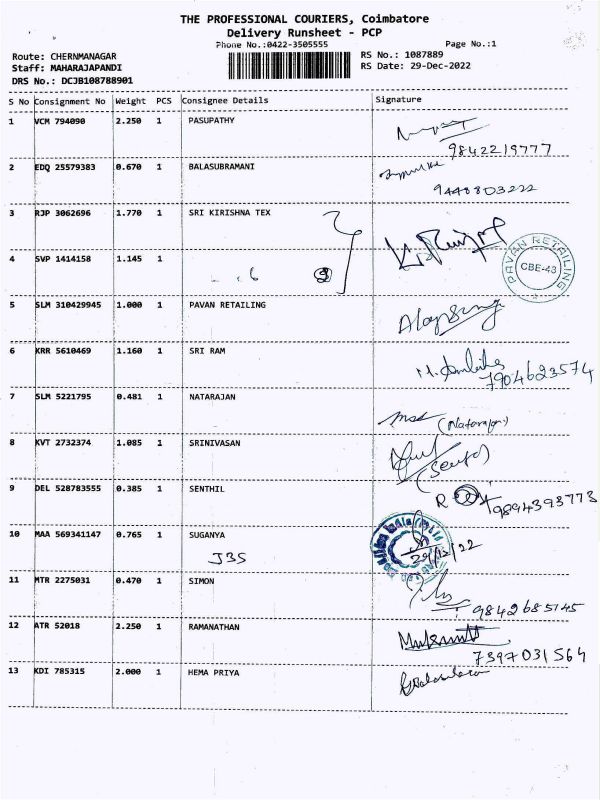 THE PROFESSIONAL COURIERS, Coimbatore
Delivery Runsheet - PCP
Phone No.:0422-3505555 Page No.:1
Route: CHERNMANAGAR RS No.: 1087889
Staff: MAHARAJAPANDI RS Date: 29-Dec-2022
DRS No.: DCJB108788901
S No Consignment No Weight PCS Consignee Details Signature
1 VCM 794090 2.250 1 PASUPATHY
9842219777
2 EDQ 25579383 0.670 1 BALASUBRAMANI
9448803222
3 RJP 3062696 1.770 1 SRI KIRISHNA TEX
4 SVP 1414158 1.145 1
PAVAN RETAILING
CBE-43
5 SLM 310429945 1.000 1 PAVAN RETAILING
6 KRR 5610469 1.160 1 SRI RAM
7904623574
7 SLM 5221795 0.481 1 NATARAJAN
(Natarajan)
8 KVT 2732374 1.085 1 SRINIVASAN
9 DEL 528783555 0.385 1 SENTHIL
9894393773
10 MAA 569341147 0.765 1 SUGANYA
JBS
29/12/22
11 MTR 2275031 0.470 1 SIMON
9842685145
12 ATR 52018 2.250 1 RAMANATHAN
7397031564
13 KDI 785315 2.000 1 HEMA PRIYA